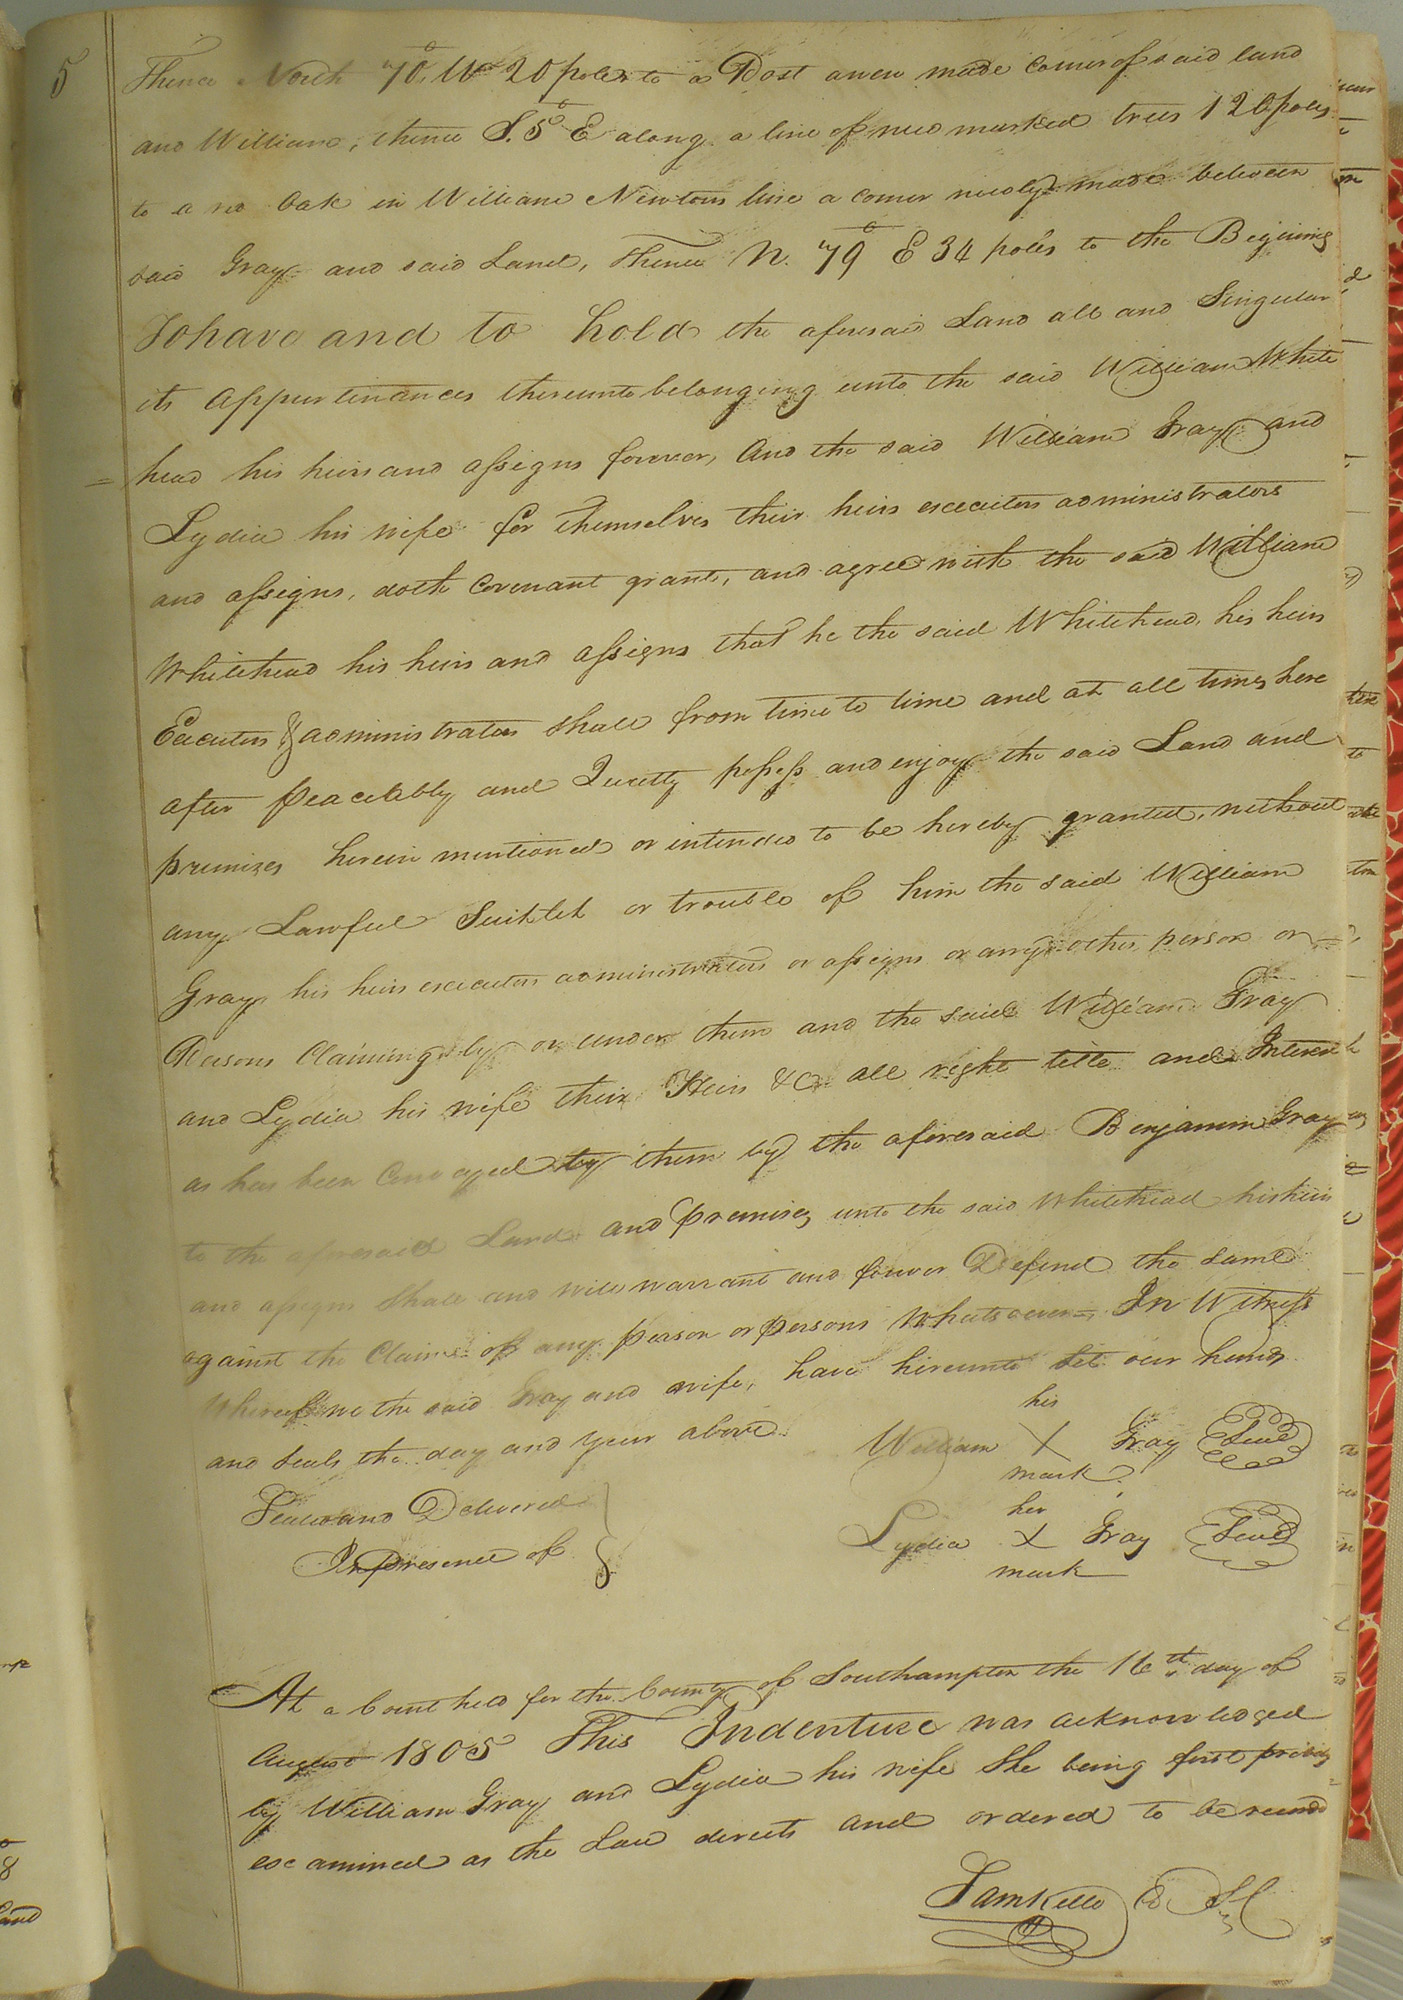 5
Thence North 70° W 20 poles to a Post anew made corner of said land
and William, thence S. 5° E along a line of new marked trees 120 poles
to a red Oak in William Newtons line a corner newly made between
said Gray and said Land, Thence N. 79° E 34 poles to the Begining
To have and to hold the aforesaid Land all and Singular
its appurtinances thereunto belonging unto the said William White
head his heirs and assigns forever, And the said William Gray and
Lydia his wife for themselves their heirs executors administrators
and assigns, doth covenant grant, and agree with the said William
Whitehead his heirs and assigns that he the said Whitehead, his heirs
Executors & administrators shall from time to time and at all times here
after peaceably and Quietly possess and enjoy the said Land and
premises herein mentioned or intended to be hereby granted, without
any Lawful Suit let or trouble of him the said William
Gray his heirs executors administrators or assigns or any other person or
Persons Claiming by or under them and the said William Gray
and Lydia his wife their Heirs &C all right title and Interest
as has been Conveyed by them by the aforesaid Benjamin Gray
to the aforesaid Land and premises unto the said Whitehead his heirs
and assigns Shall and will warrant and forever Defend the same
against the Claims of any person or persons Whatsoever = In Witness
Whereof we the said Gray and wife, have hereunto set our hands
and seals the day and year above
his
William X Gray Seal
mark
Sealed and Delivered
In presence of
her
Lydia X Gray Seal
mark
At a Court held for the County of Southampton the 16th day of
August 1805 This Indenture was acknowledged
by William Gray and Lydia his wife She being first privily
examined as the Law directs and ordered to be recorded
Sam Kello